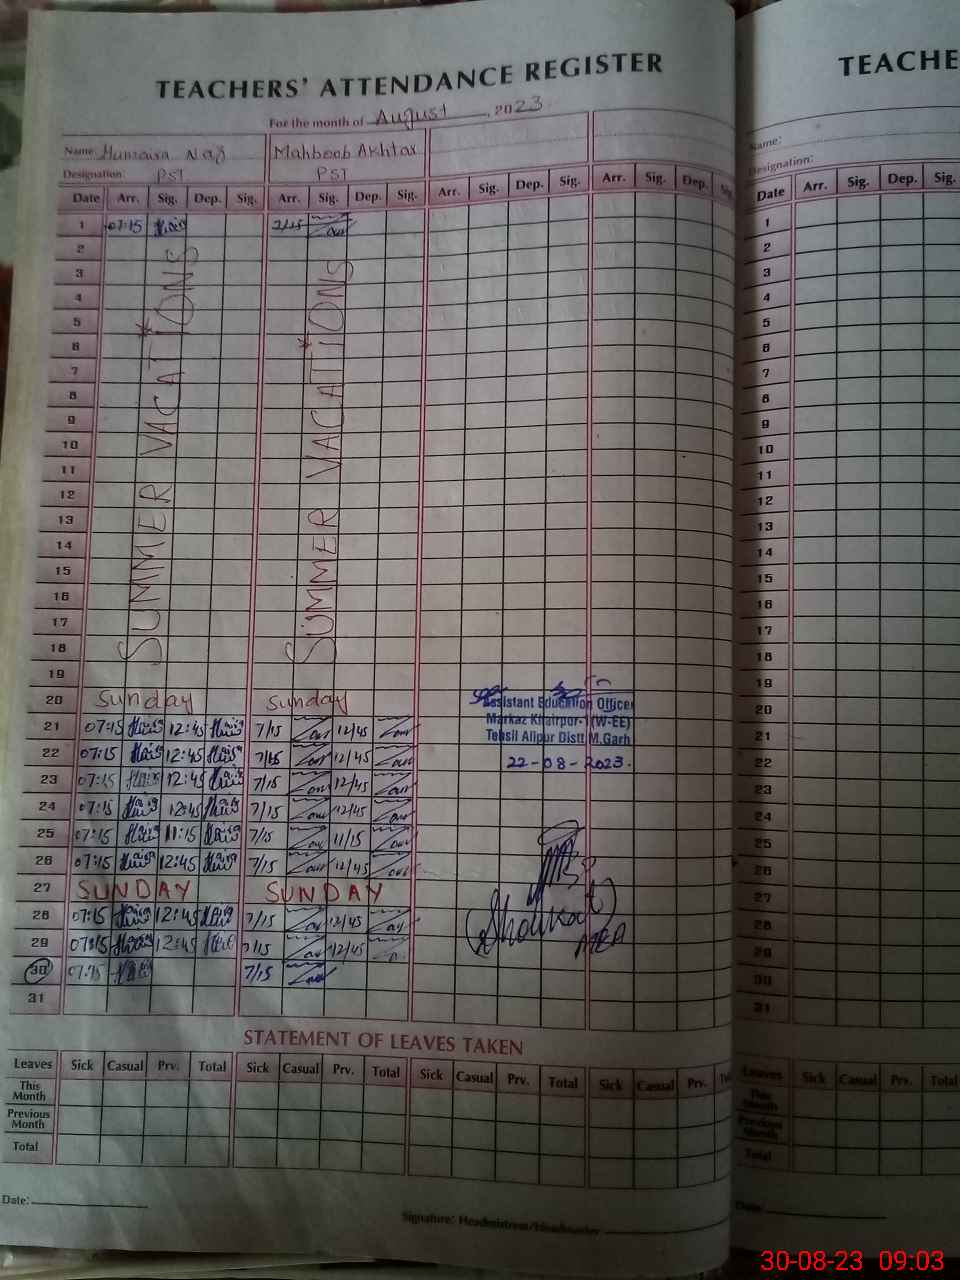 TEACHERS' ATTENDANCE REGISTER
For the month of August, 2023
Name: Humaira Naz Mahboob Akhtar
Designation: PST PST
Date Arr. Sig. Dep. Sig. Arr. Sig. Dep. Sig. Arr. Sig. Dep. Sig. Arr. Sig. Dep. Sig.
1 07:15 7/15
2
3
4
5
6
7
8
9
10
11
12
13
14
15
16
17
18
19
SUMMER VACATIONS SUMMER VACATIONS
20 Sunday Sunday
21 07:15 12:45 7/15 12/45
22 07:15 12:45 7/15 12/45
23 07:15 12:45 7/15 12/45
24 07:15 12:45 7/15 12/45
25 07:15 11:15 7/15 11/15
26 07:15 12:45 7/15 12/45
27 SUNDAY SUNDAY
28 07:15 12:45 7/15 12/45
29 07:15 12:45 7/15 12/45
30 07:15 7/15
31
Assistant Education Officer
Markaz Khairpur-1 (W-EE)
Tehsil Alipur Distt M.Garh
22-08-2023.
Shoukat
MEA
STATEMENT OF LEAVES TAKEN
Leaves Sick Casual Prv. Total Sick Casual Prv. Total Sick Casual Prv. Total Sick Casual Prv.
This Month
Previous Month
Total
Date:
Signature: Headmistress/Headmaster
TEACHE
Name:
Designation:
Date Arr. Sig. Dep. Sig.
1
2
3
4
5
6
7
8
9
10
11
12
13
14
15
16
17
18
19
20
21
22
23
24
25
26
27
28
29
30
31
Leaves Sick Casual Prv. Total
This Month
Previous Month
Total
Date:
30-08-23 09:03